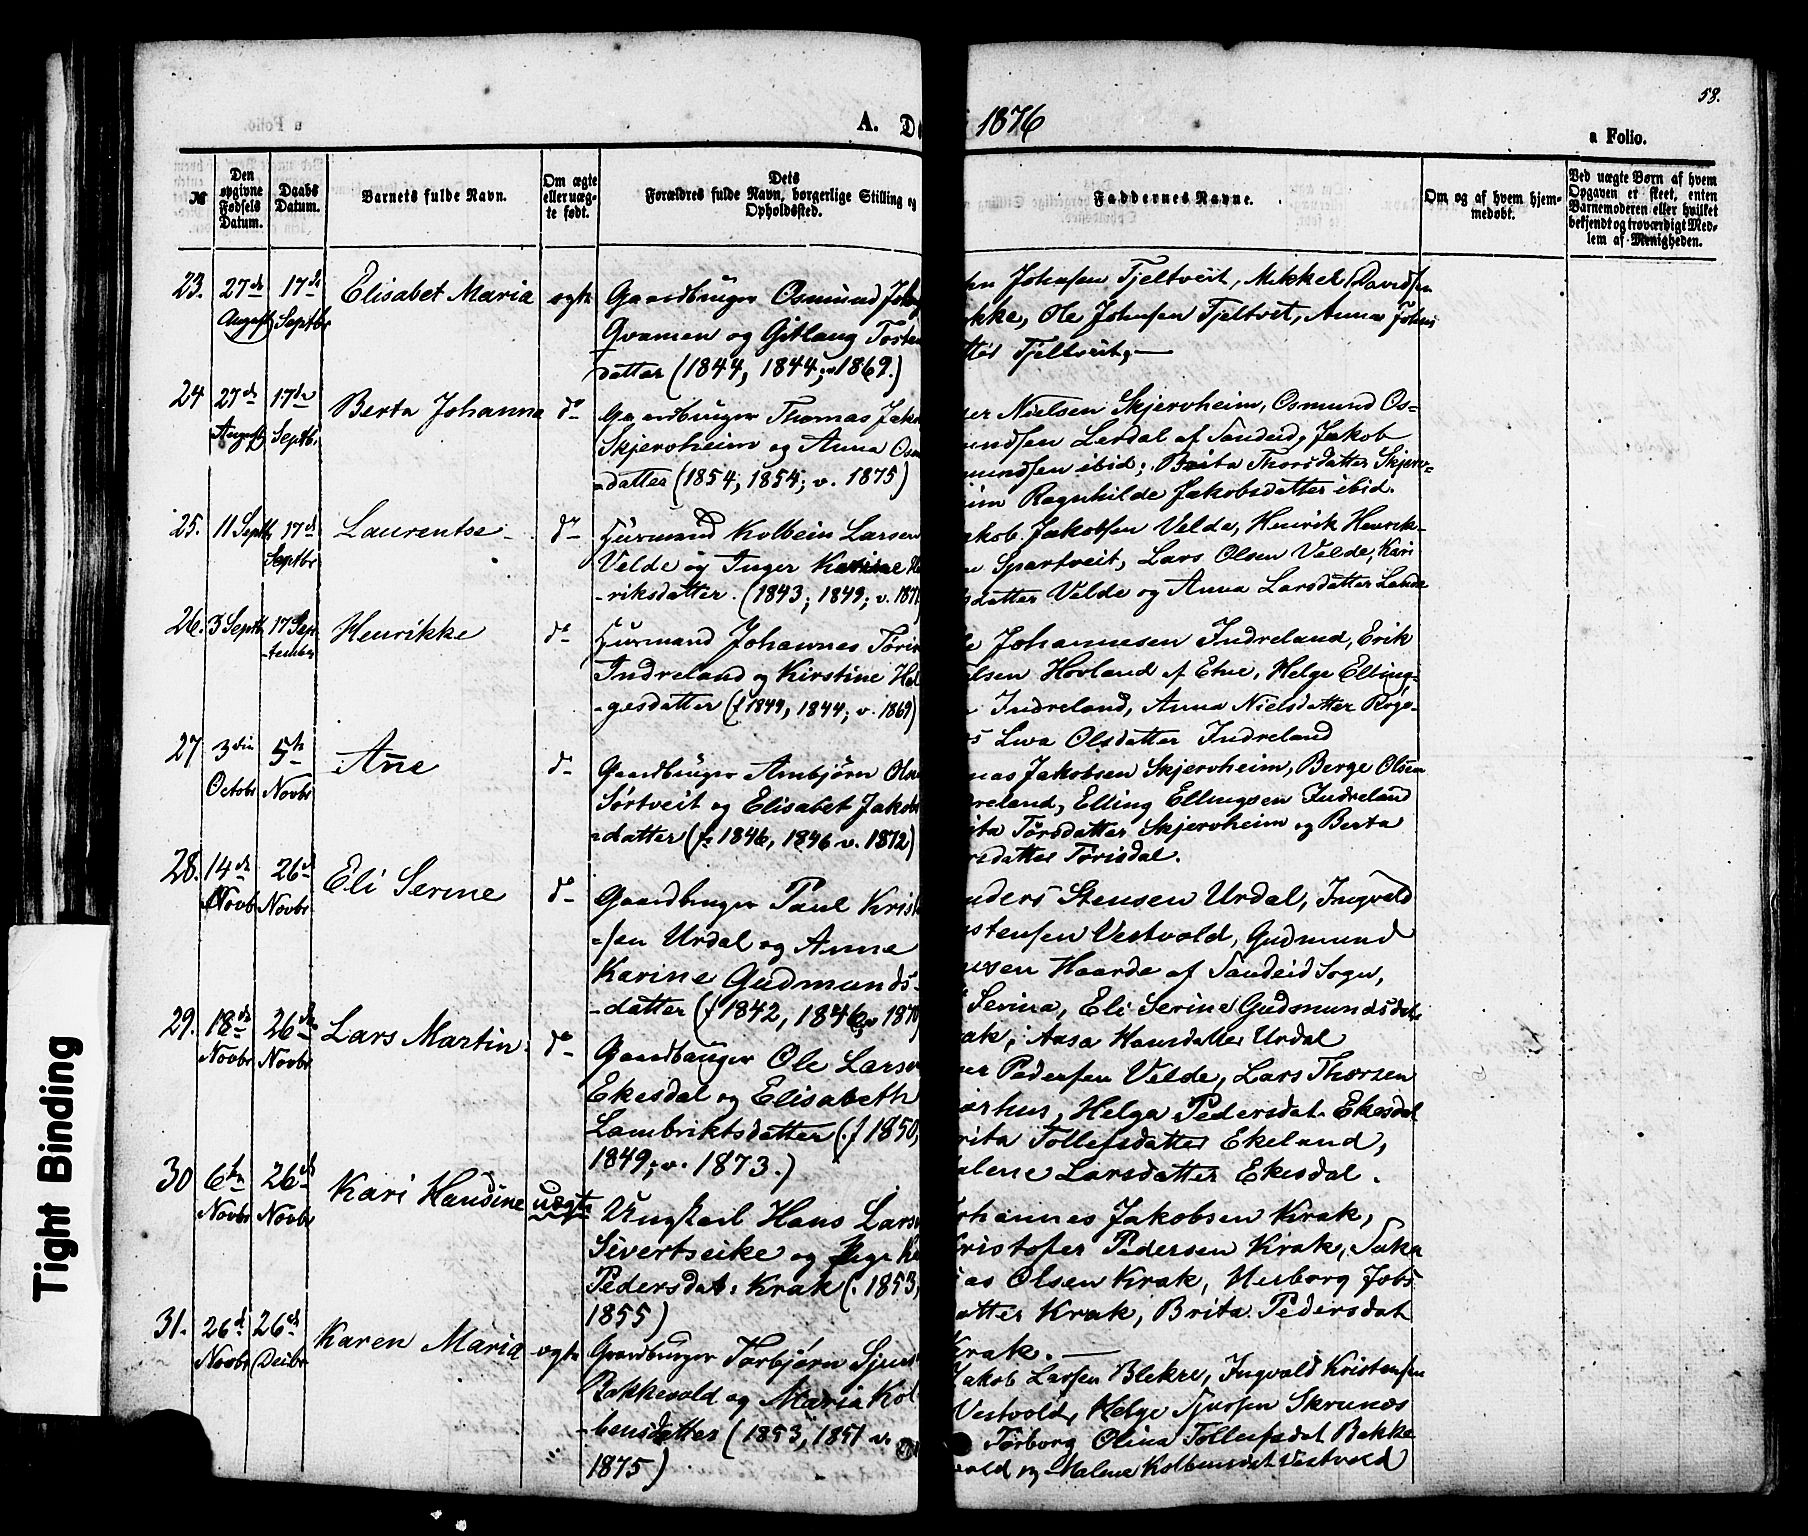 58.
A. Do 1876
a Folio.
№
Den opgivne Fødsels Datum.
Daabs Datum.
Barnets fulde Navn.
Om ægte eller uægte født.
Dets Forældres fulde Navn, borgerlige Stilling og Opholdsted.
Faddernes Navne.
Om og af hvem hjemmedøbt.
Ved uægte Børn af hvem Opgaven er skeet, enten Barnemoderen eller hvilket bekjendt og troværdigt Medlem af Menigheden.
23. 27de August 17de Septbr Elisabet Maria ægte
Gaardbruger Osmund Joh
Qvamen og Gitlaug Tosten
datter (1844, 1844; v. 1869.)
Johnsen Tjeltveit, Mikkel Davidsen
kke, Ole Johnsen Tjeltveit, Anna Johns
tter Tjeltveit,
24 27de August 17de Septbr. Berta Johanna do
Gaardbruger Thomas Jak
Skjervheim og Anna Osm
-datter (1854; 1854; v. 1875)
er Nielsen Skjervheim, Osmund Os-
mundsen Lerdal af Sandeid, Jakob
mundsen ibid; Brita Thorsdatter Skjerv-
eim Ragnhilde Jakobsdatter ibid.
25. 11 Septb 17de Septbr Laurentse do
Husmand Kolbein Larsen
Velde og Inger Karine He
-riksdatter. (1843; 1849; v. 1871
akob Jakobsen Velde, Henrik Henrik-
n Spartveit, Lars Olsen Velde, Kari
sdatter Velde og Anna Larsdatter Lande
26. 3 Septb 17 Sep-tember Henrikke do
Husmand Johannes Tøris
Indreland og Kirstine Hel
-gesdatter (f 1849, 1844; v. 1869)
e Johannesen Indreland, Erik
elsen Hovland af Etne, Helge Elling-
n Indreland, Anna Nielsdatter Røge-
s Lwa Olsdatter Indreland
27 3die Octobr 5te Novbr Anne do
Gaardbruger Ambjørn Olse
Sørtveit og Elisabet Jakobs
-datter (f: 1846, 1846 v. 1872)
mas Jakobsen Skjervheim, Berge Olsen
reland, Elling Ellingsen Indreland
rita Torsdatter Skjervheim og Berta
rsdatter Tørisdal.
28. 14de Novb 26de Novbr Eli Serine do
Gaardbruger Paul Krist
-sen Urdal og Anne
Karine Gudmunds-
-datter (f 1842, 1846, v 1870
nders Stensen Urdal, Ingvald
istensen Vestvold, Gudmund
nesen Haarde af Sandeid Sogn,
Serina, Eli Serine Gudmundsdat.
rak, Aasa Hansdatter Urdal
29. 18de Novbr 26de Novbr Lars Martin. do
Gaardbruger Ole Larse
Ekesdal og Elisabeth
Lambriktsdatter (f 1850,
1849; v. 1873.)
er Pedersen Velde, Lars Thorsen
arhus, Helga Pedersdat. Ekesdal
rita Tollefsdatter Ekeland,
alene Larsdatter Ekesdal.
30 6te Novbr 26de Novbr Kari Handine uægte
Ungkarl Hans Lars
Sivertseike og Pige K
Pedersdat. Krak (. 1853,
1855)
ohannes Jakobsen Krak,
ristofer Pedersen Krak, Saka
ias Olsen Krak, Herborg Jobs
atter Krak, Brita Pedersdat
Krak.
31. 26de Novbr 26de Decbr Karen Maria ægte
Gaardbruger Torbjørn Sjurs
Bakkevold og Maria Kol
-bensdatter (1853, 1851 v.
1875)
Jakob Larsen Blekre, Ingvald Kristensen
Vestvold, Helge Sjursen Skrunes
Torborg Olina Tollefsdat Bakke
vold og Malene Kolbensdat Vestvold
Tight Binding